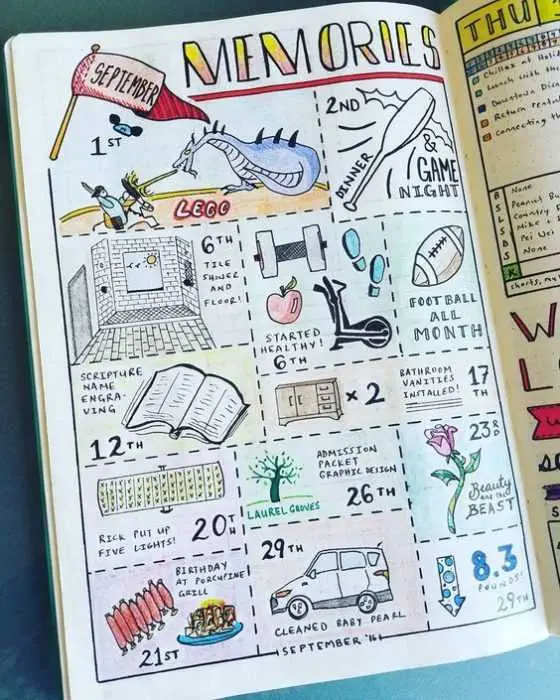 MEMORIES
SEPTEMBER
1ST
LEGO
2ND
DINNER
& GAME
NIGHT
6TH
TILE
SHOWER
AND
FLOOR!
STARTED
HEALTHY!
6TH
FOOTBALL
ALL
MONTH
SCRIPTURE
NAME
ENGRA-
VING
12TH
×2
BATHROOM
VANITIES
INSTALLED!
17
TH
RICK PUT UP
FIVE LIGHTS!
20TH
LAUREL GROVES
ADMISSION
PACKET
GRAPHIC DESIGN
26TH
23RD
Beauty
and the
BEAST
BIRTHDAY
AT PORCUPINE
GRILL
21ST
29TH
CLEANED BABY PEARL
8.3
POUNDS!
29TH
SEPTEMBER '16
THU
Chillax at Holid
Lunch with the
Downtown Disn
Return renta
Connecting th
B
None
S
Peanut Bu
L
Country B
S
Mike's
D
Pei Wei
S
None
K
W
L